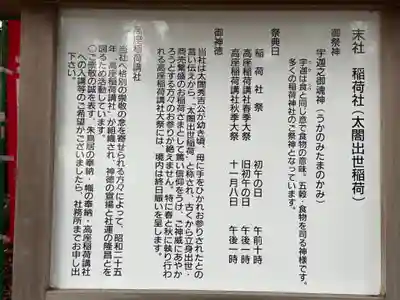 末社 稲荷社(太閤出世稲荷)
御祭神
宇迦之御魂神(うかのみたまのかみ)
宇迦は食と同じ意で食物の意味。五穀・食物を司る神様です。
多くの稲荷神社のご祭神となっています。
祭典日
稲荷社祭 初午の日 午前十時
高座稲荷講社春季大祭 旧初午の日 午後一時
高座稲荷講社秋季大祭 十一月八日 午後一時
御神徳
当社は太閤秀吉公が幼き頃、母に手をひかれお参りされたとの
言い伝えから、「太閤出世稲荷」と称され、古くから立身出世・
商売繁盛のお稲荷さまとして篤い信仰をうけ、ご神威にあやか
ろうとする方々のお参りが絶えません。特に春と秋に執り行わ
れる高座稲荷講社大祭には、境内は終日賑いを呈します。
高座稲荷講社
当社へ格別の崇敬の念を寄せられる方々によって、昭和二十五
年、「高座稲荷講社」が組織され、神徳の宣揚と社運の隆昌とを
図るため活動しています。
○ご崇敬の誠を表す、朱鳥居の奉納・幟の奉納・高座稲荷講社
への入講等のご希望がございましたら、社務所までお申し出
下さい。